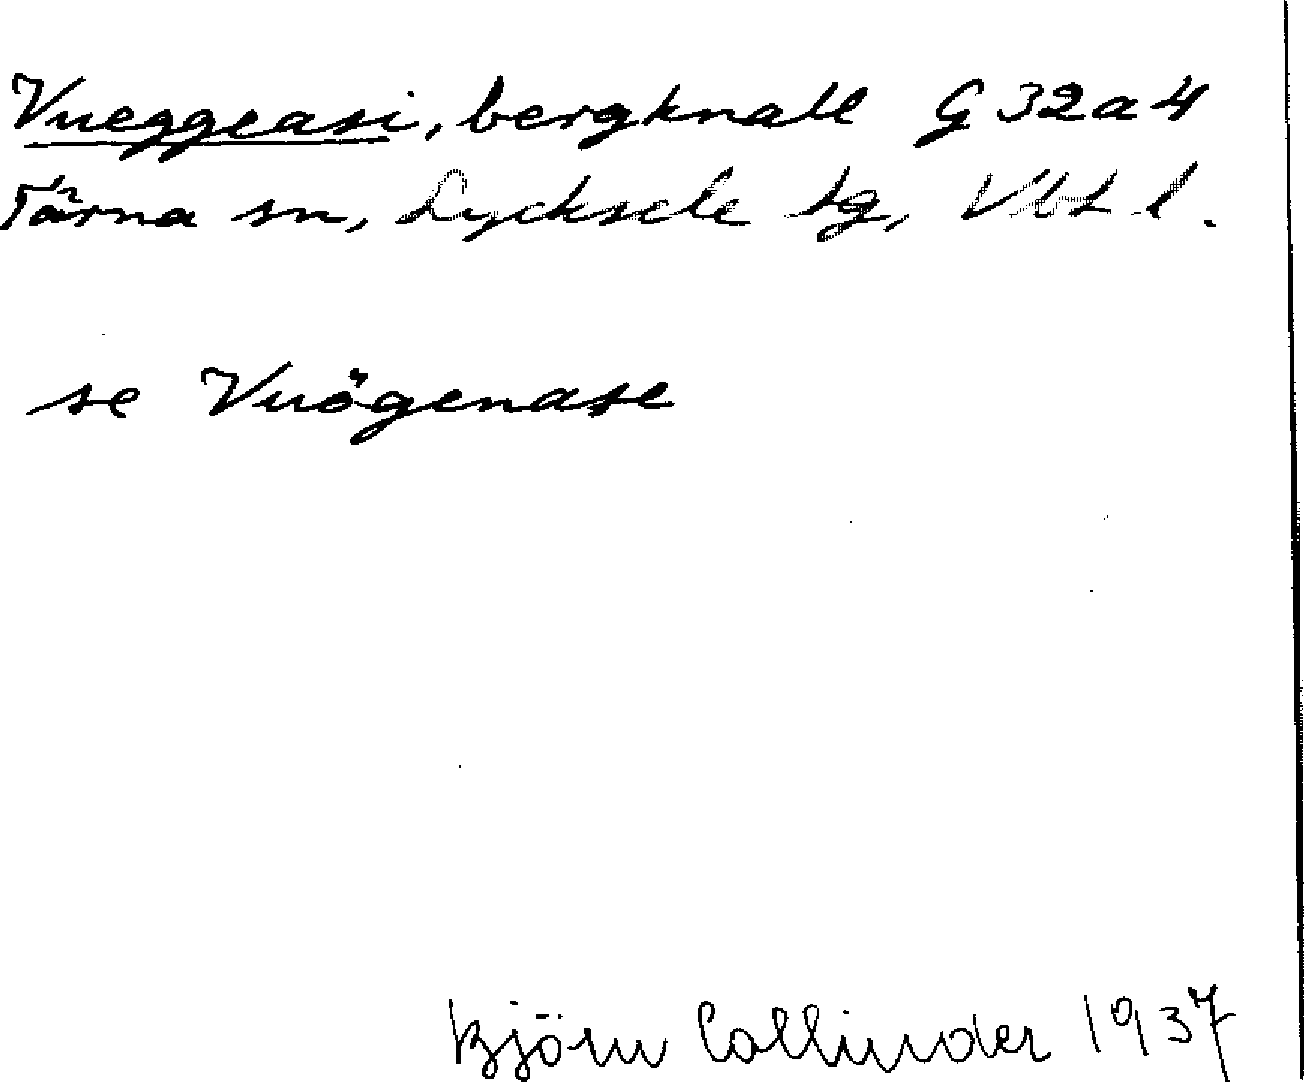 Vueggeasi, bergknall G 32 a 4
Tärna sn, Lycksele lg, Vbt l.
se Vuögenase
Björn Collinder 1937